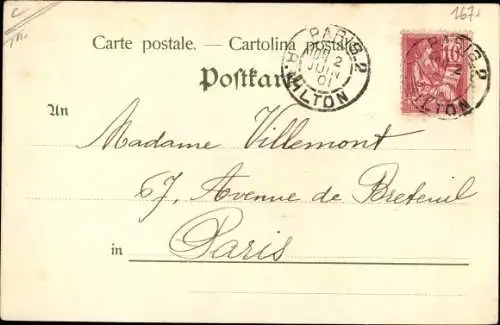 267.
Carte postale. — Cartolina postale.
Postkarte
PARIS_2
2
JUIN
01
R. MILTON
PARIS_2
MILTON
10
An
Madame Villemont
67, Avenue de Breteuil
in Paris